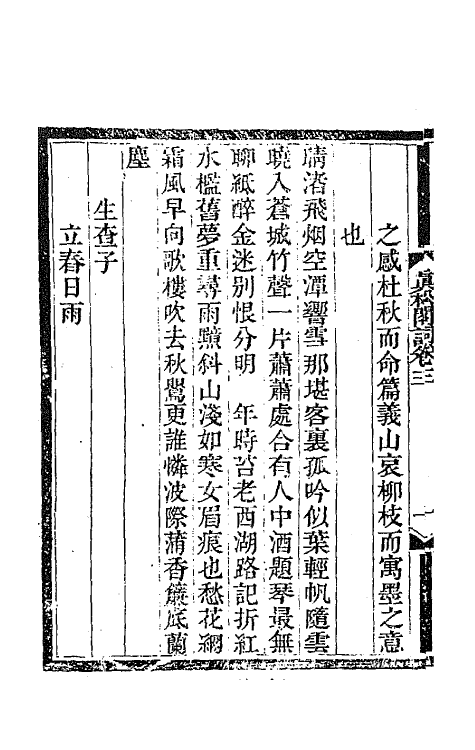 眞松閣詞卷三
一
之感杜秋而命篇義山哀柳枝而寓墨之意
也
晴渚飛烟空潭響雪那堪客裏孤吟似葉輕帆隨雲
曉入蒼城竹聲一片蕭蕭處合有人中酒題琴最無
聊紙醉金迷别恨分明　年時苔老西湖路記折紅
水檻舊夢重尋雨黯斜山淺如寒女眉痕也愁花網
霜風早向歌樓吹去秋鶯更誰憐波際蒲香簾底蘭
塵
生查子
立春日雨